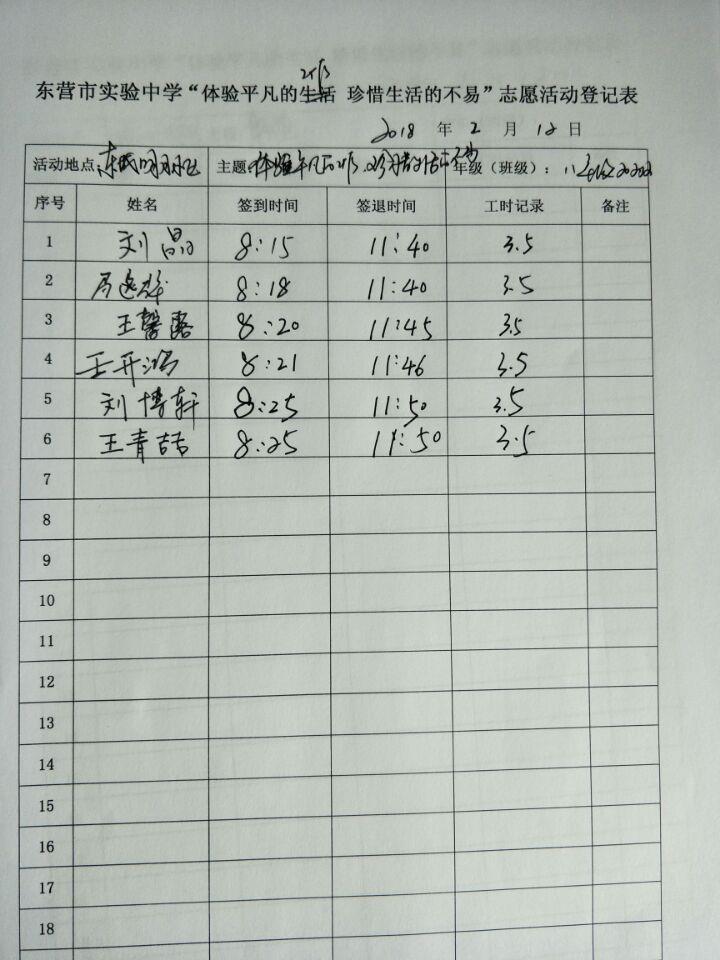 东营市实验中学“体验平凡的生活 珍惜生活的不易”志愿活动登记表
2018 年 2 月 12 日
活动地点: 主题: 体验平凡的 年级（班级）:
序号 姓名 签到时间 签退时间 工时记录 备注
1 刘晶 8:15 11:40 3.5
2 8:18 11:40 3.5
3 王馨露 8:20 11:45 3.5
4 王开鸿 8:21 11:46 3.5
5 刘博轩 8:25 11:50 3.5
6 王青喆 8:25 11:50 3.5
7
8
9
10
11
12
13
14
15
16
17
18